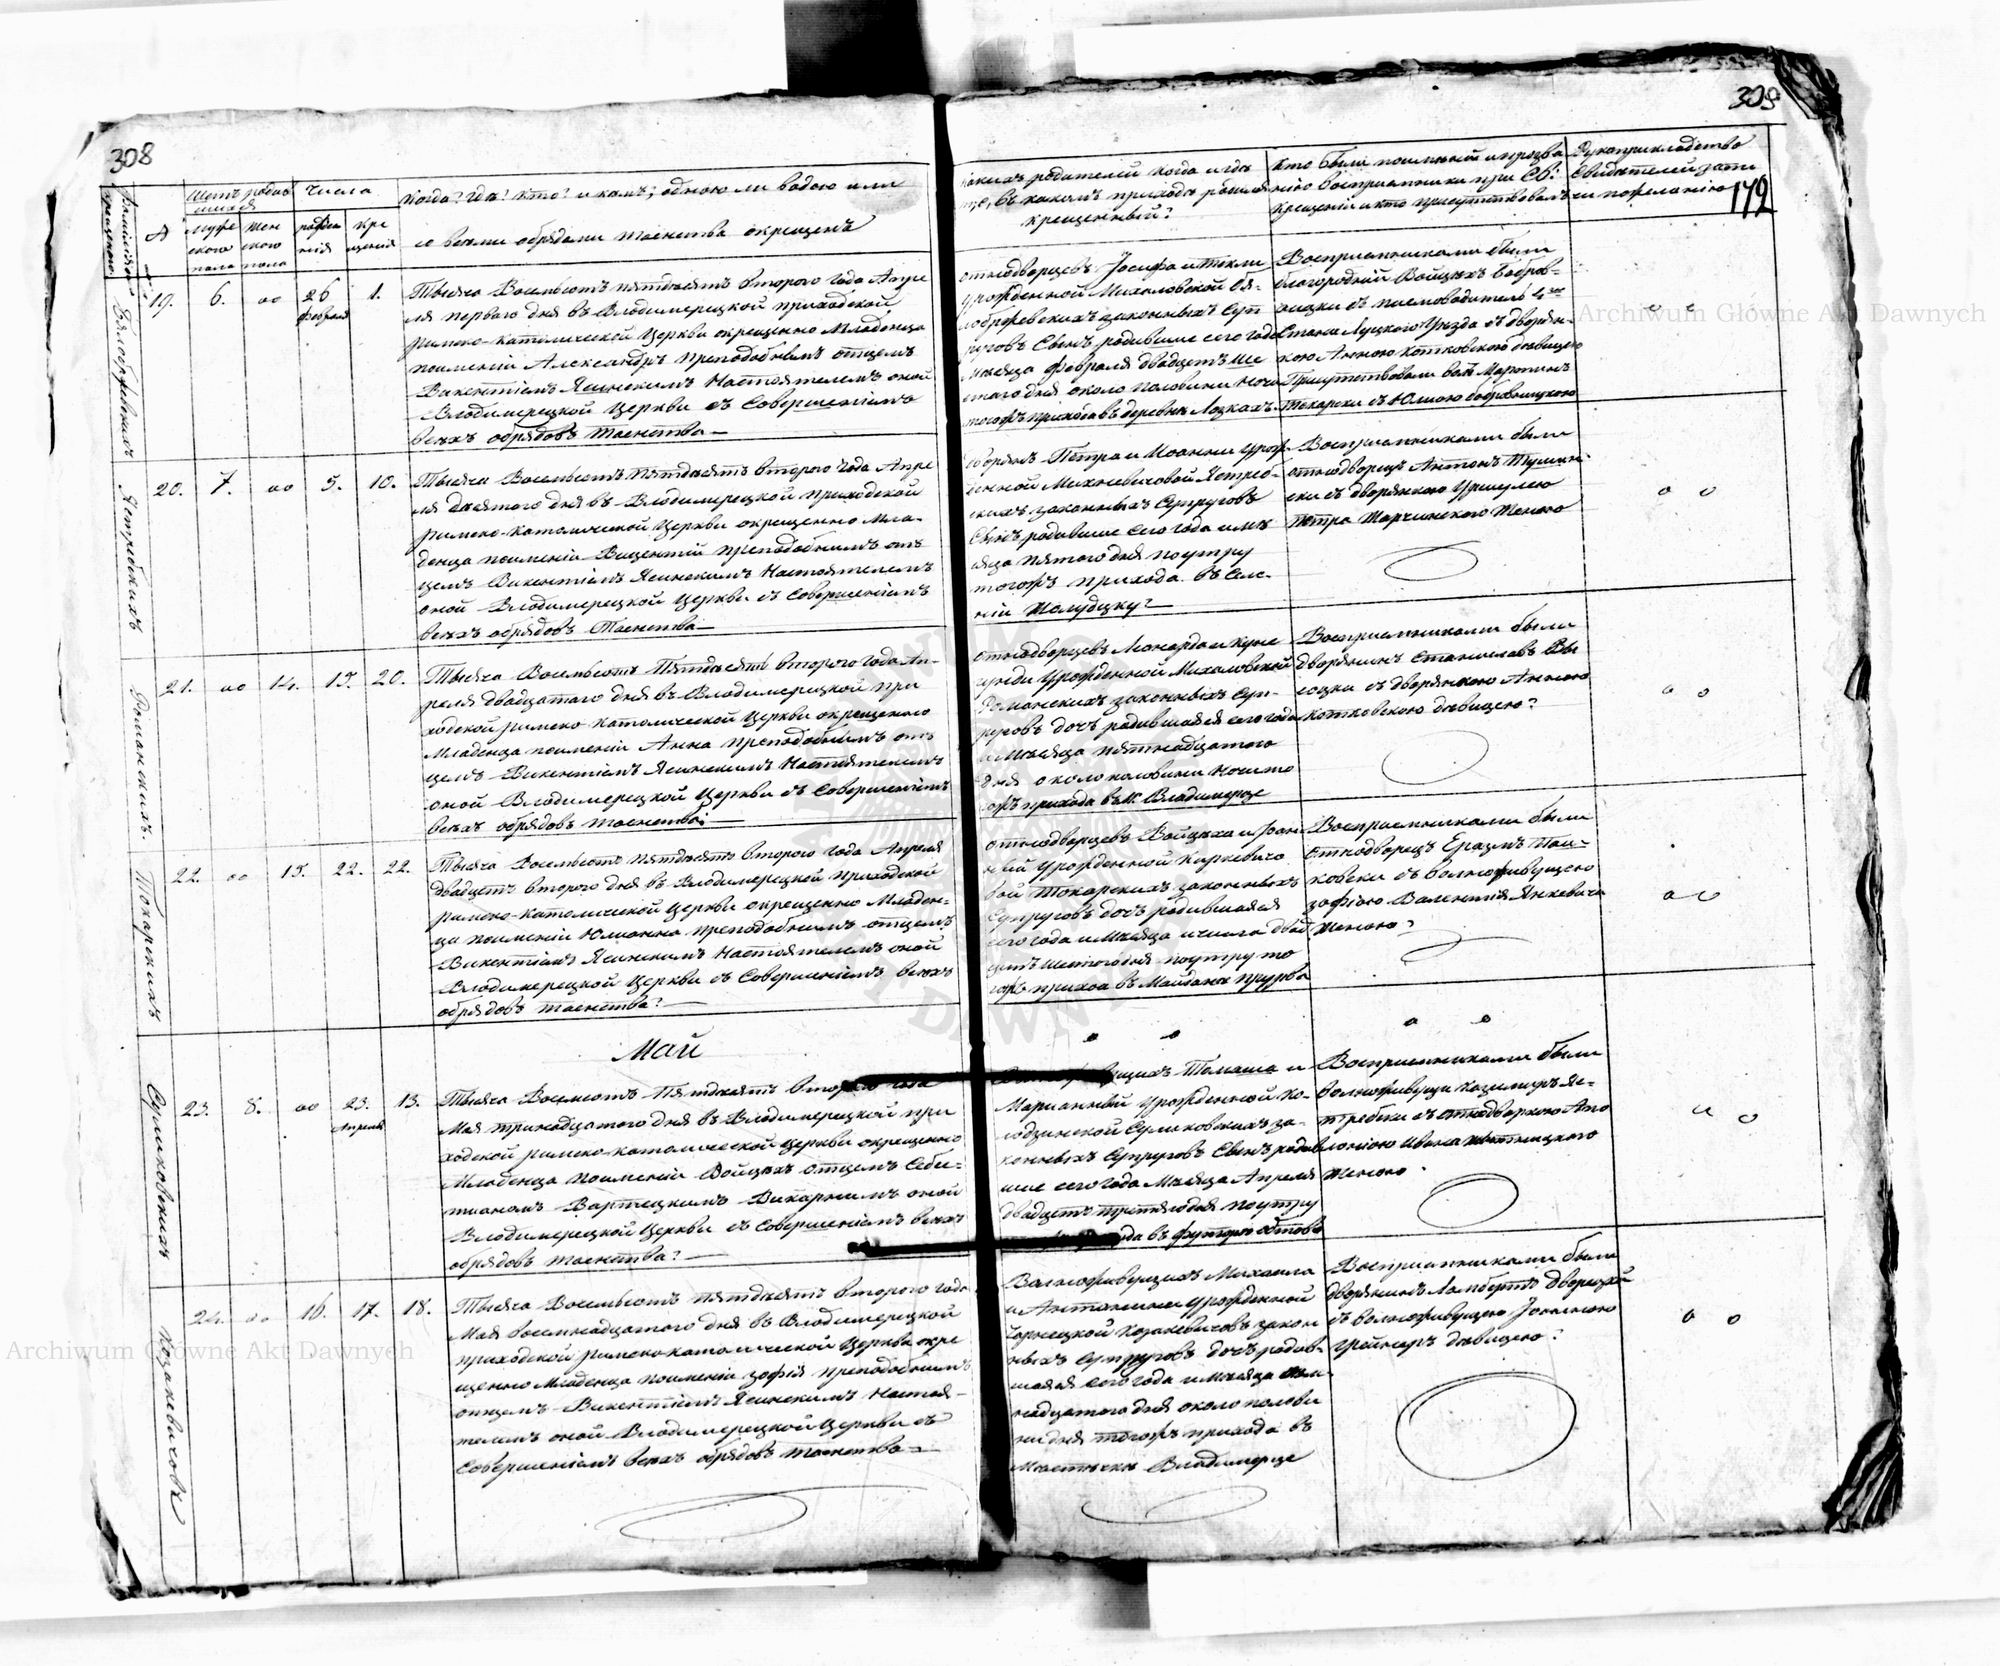 308
309
179
Фамилія крещеннаго
№
Щетъ родившихся
мужескаго пола
женскаго пола
Числа
рожденія
крещенія
Когда? где? кто? и кемъ; одною ли водою или
со всеми обрядами таинства окрещенъ
какихъ родителей когда и где
въ какомъ приходе родился
крещенный?
кто были по имени и прозва
нію восприемники при Св:
крещеніи и кто присутствовалъ
Рукоприкладство
Свидетелей
по желанію
19. 6. oo 26 февраля 1.
Тысяча Восемьсотъ пятдесятъ второго года Апре
ля перваго дня въ Влодимерецкой приходской
римско-католической Церкви окрещенно Младенца
поименіи Александръ преподобнымъ отцемъ
Викентіемъ Ясинскимъ Настоятелемъ оной
Влодимерецкой Церкви съ Совершеніемъ
всехъ обрядовъ таинства
однодворцевъ Іосифа и Текли
урожденной Михаловской Бя-
лобржевскихъ законныхъ Суп
руговъ Сынъ родившие сего года
месяца февраля двадцеть ше
стаго дня около половины ночи
тогожъ прихода въ деревне Лозкахъ
Восприемниками были
благородный Войцехъ Бобров-
ницки съ писмоводитель 4
Стана Луцкого Уезда съ дворян-
кою Анною Котковскою девицею
Присутствовали Мартинъ
Токарски съ Юлиею Бобровницкою
o o
Ястржебскихъ
20. 7. oo 5. 10.
Тысяча Восемьсотъ пятдесятъ второго года Апре
ля десятого дня въ Влодимерецкой приходской
римско-католической Церкви окрещенно Мла-
денца поименіи Вицентій преподобнымъ от
цемъ Викентіемъ Ясинскимъ Настоятелемъ
оной Влодимерецкой Церкви съ Совершеніемъ
всехъ обрядовъ Таинства
дворянъ Петра и Иоанны урож
денной Михневичовой Ястреб-
скихъ законныхъ Супруговъ
Сынъ родившие сего года и ме
сяца пятого дня поутру
тогожъ прихода въ Селе-
ніи Жолудзку?
Восприемниками были
однодворецъ Антонъ
ски съ дворянкою Уршулею
Петра Марчинского Женою
o o
Романскихъ
21. oo 14. 15. 20.
Тысяча Восемьсотъ Пятдесятъ второго года Ап-
реля двадцатого дня въ Влодимерецкой при
ходской римско-католической Церкви окрещенно
Младенца поименіи Анна преподобнымъ от
цемъ Викентіемъ Ясинскимъ Настоятелемъ
оной Влодимерецкой Церкви съ Совершеніемъ
всехъ обрядовъ таинства
однодворцевъ Леонарда и Куне
гунды Урожденной Михаловской
Романскихъ законныхъ Суп-
руговъ дочъ родившаяся сего года
и Месяца пятнадцатого
дня около половины ночи то
гожъ прихода въ М. Владимерце
Восприемниками были
дворянинъ Станиславъ Вы
соцки съ дворянкою Анною
Котковскою девицею?
o o
Токарскихъ
22. oo 15. 22. 22.
Тысяча Восемьсотъ пятдесятъ второго года Апреля
двадцеть второго дня въ Влодимерецкой приходской
римско-католической Церкви окрещенно Младен-
ца поименіи Юлианна преподобнымъ отцемъ
Викентіемъ Ясинскимъ Настоятелемъ оной
Влодимерецкой Церкви съ Совершеніемъ всехъ
обрядовъ таинства?
однодворцевъ Войцеха и Іоан
ны Урожденной Карпевичо
вой Токарскихъ законныхъ
Супруговъ дочъ родившаяся
сего года и Месяца и числа двад
цеть шестого дня поутру то
гожъ прихода въ Майдане
Восприемниками были
однодворецъ Еразмъ Пен-
ковски съ вольноживущею
Зофіею Валентія Янкевича
Женою?
o o
Май
o o
o o
Суликовскихъ
23. 8. oo 23. Апреля 13.
Тысяча Восемьсотъ Пятдесятъ второго года
Мая тринадцатого дня въ Влодимерецкой при
ходской римско-католической Церкви окрещенно
Младенца поименіи Войцехъ отцемъ Себе-
тианомъ Бартецкимъ Викарнимъ оной
Влодимерецкой Церкви съ Совершеніемъ всехъ
обрядовъ таинства?
Томаша и
Марианны Урожденной Ко-
лодзинской Суликовскихъ за-
конныхъ Супруговъ Сынъ родив
шие сего года Месяца Апреля
двадцеть третяго дня поутру
въ футоре
Восприемниками были
вольноживущи Казимиръ Яс-
требски съ однодворкою Апо
лоніею Ивана
Женою
o o
Козакевичовъ
24. oo 16. 17. 18.
Тысяча Восемьсотъ пятдесятъ второго года
Мая восемнадцатого дня въ Влодимерецкой
приходской римско католической Церкви окре
щенно Младенца поименіи Зофія преподобнымъ
отцемъ Викентіемъ Ясинскимъ Настоя-
телемъ оной Влодимерецкой Церкви съ
Совершеніемъ всехъ обрядовъ таинства
Вольноживущихъ Михаила
и Антонины урожденной
Чарнецкой Козакевичовъ закон
ныхъ Супруговъ дочъ родив-
шаяся сего года и месяца сем-
надцатого дня около полови
ни дня тогожъ прихода въ
Местечке Владимерце
Восприемниками были
дворянинъ Ламбертъ Дворецкій
съ вольноживущею Іоанною
девицею?
o o
Archiwum Główne Akt Dawnych
Archiwum Główne Akt Dawnych